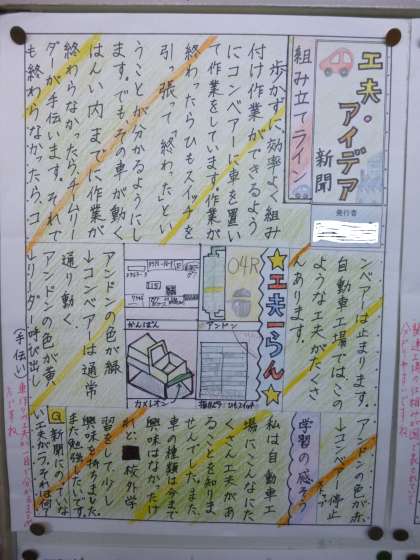 工夫・アイデア
新聞
発行者
組み立てライン
歩かずに、効率よく組み
付け作業ができるよう
にコンベアーに車を置い
て作業をしています。作業が
終わったらひもスイッチを
引っ張って「終わった」とい
うことが分かるようにし
ます。でもその車が動く
はんい内までに作業が
終わらなかったら、チームリー
ダーが手伝います。それで
も終わらなかったら、コ
ンベアーは止まります。
自動車工場ではこの
ような工夫がたくさ
んあります。
★工夫一らん★
04R
アンドン
かんばん
カメレオン
ひもスイッチ
アンドンの色が緑
→コンベアーは通常
通り動く。
アンドンの色が黄
→リーダー呼び出し
(手伝い)
アンドンの色が赤
→コンベアー停止
学習の感そう
私は自動車工
場にこんなにた
くさん工夫があ
ることを知りま
せんでした。また、
車の種類は今まで
興味はなかったけ
れど、校外学
習をして、少し
興味を持ちました。
また勉強したいです。
Q新聞にのっていな
い工夫が